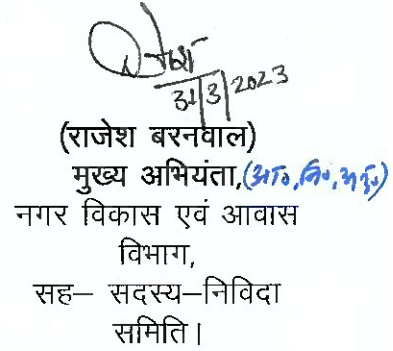 राजेश
31/3/2023
(राजेश बरनवाल)
मुख्य अभियंता,
नगर विकास एवं आवास
विभाग,
सह– सदस्य–निविदा
समिति।